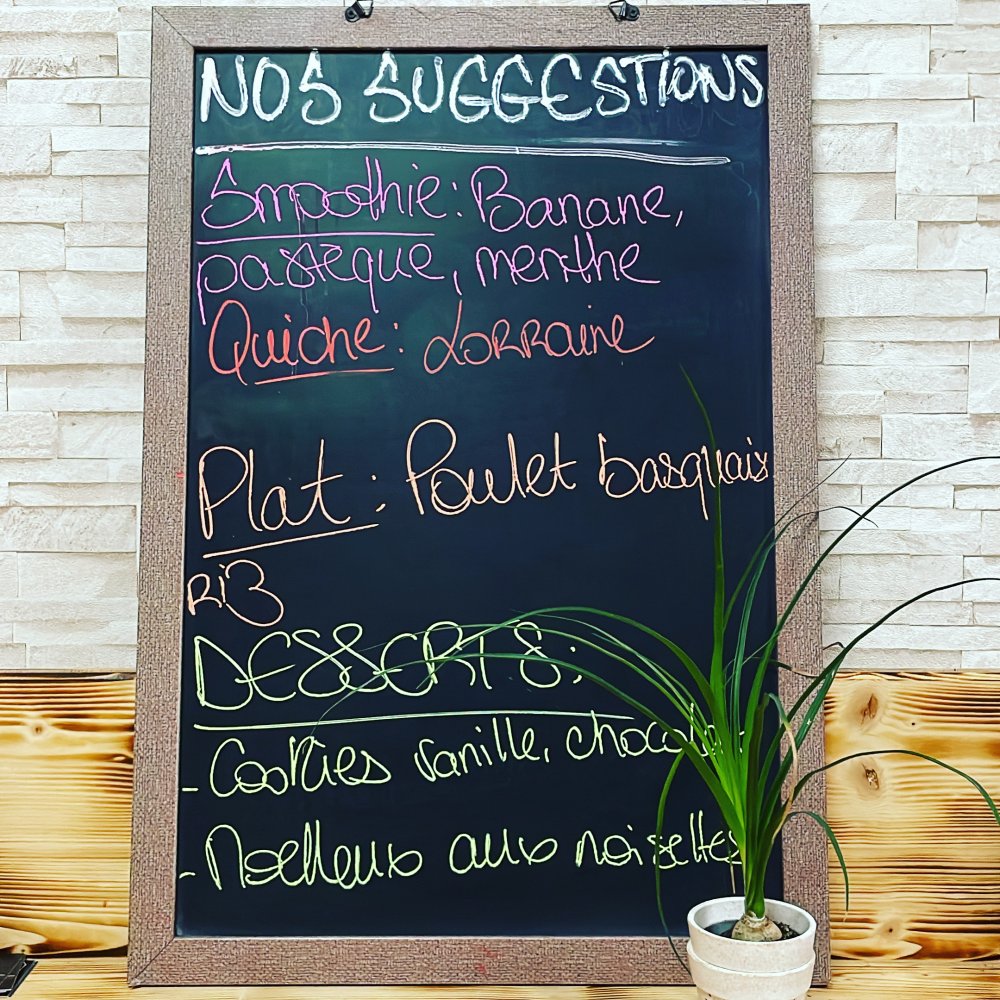 NOS SUGGESTIONS
Smoothie: Banane,
pastèque, menthe
Quiche: Lorraine
Plat: Poulet basquais
Riz
DESSERTS:
- Cookies vanille, chocolat
- Moelleux aux noisettes